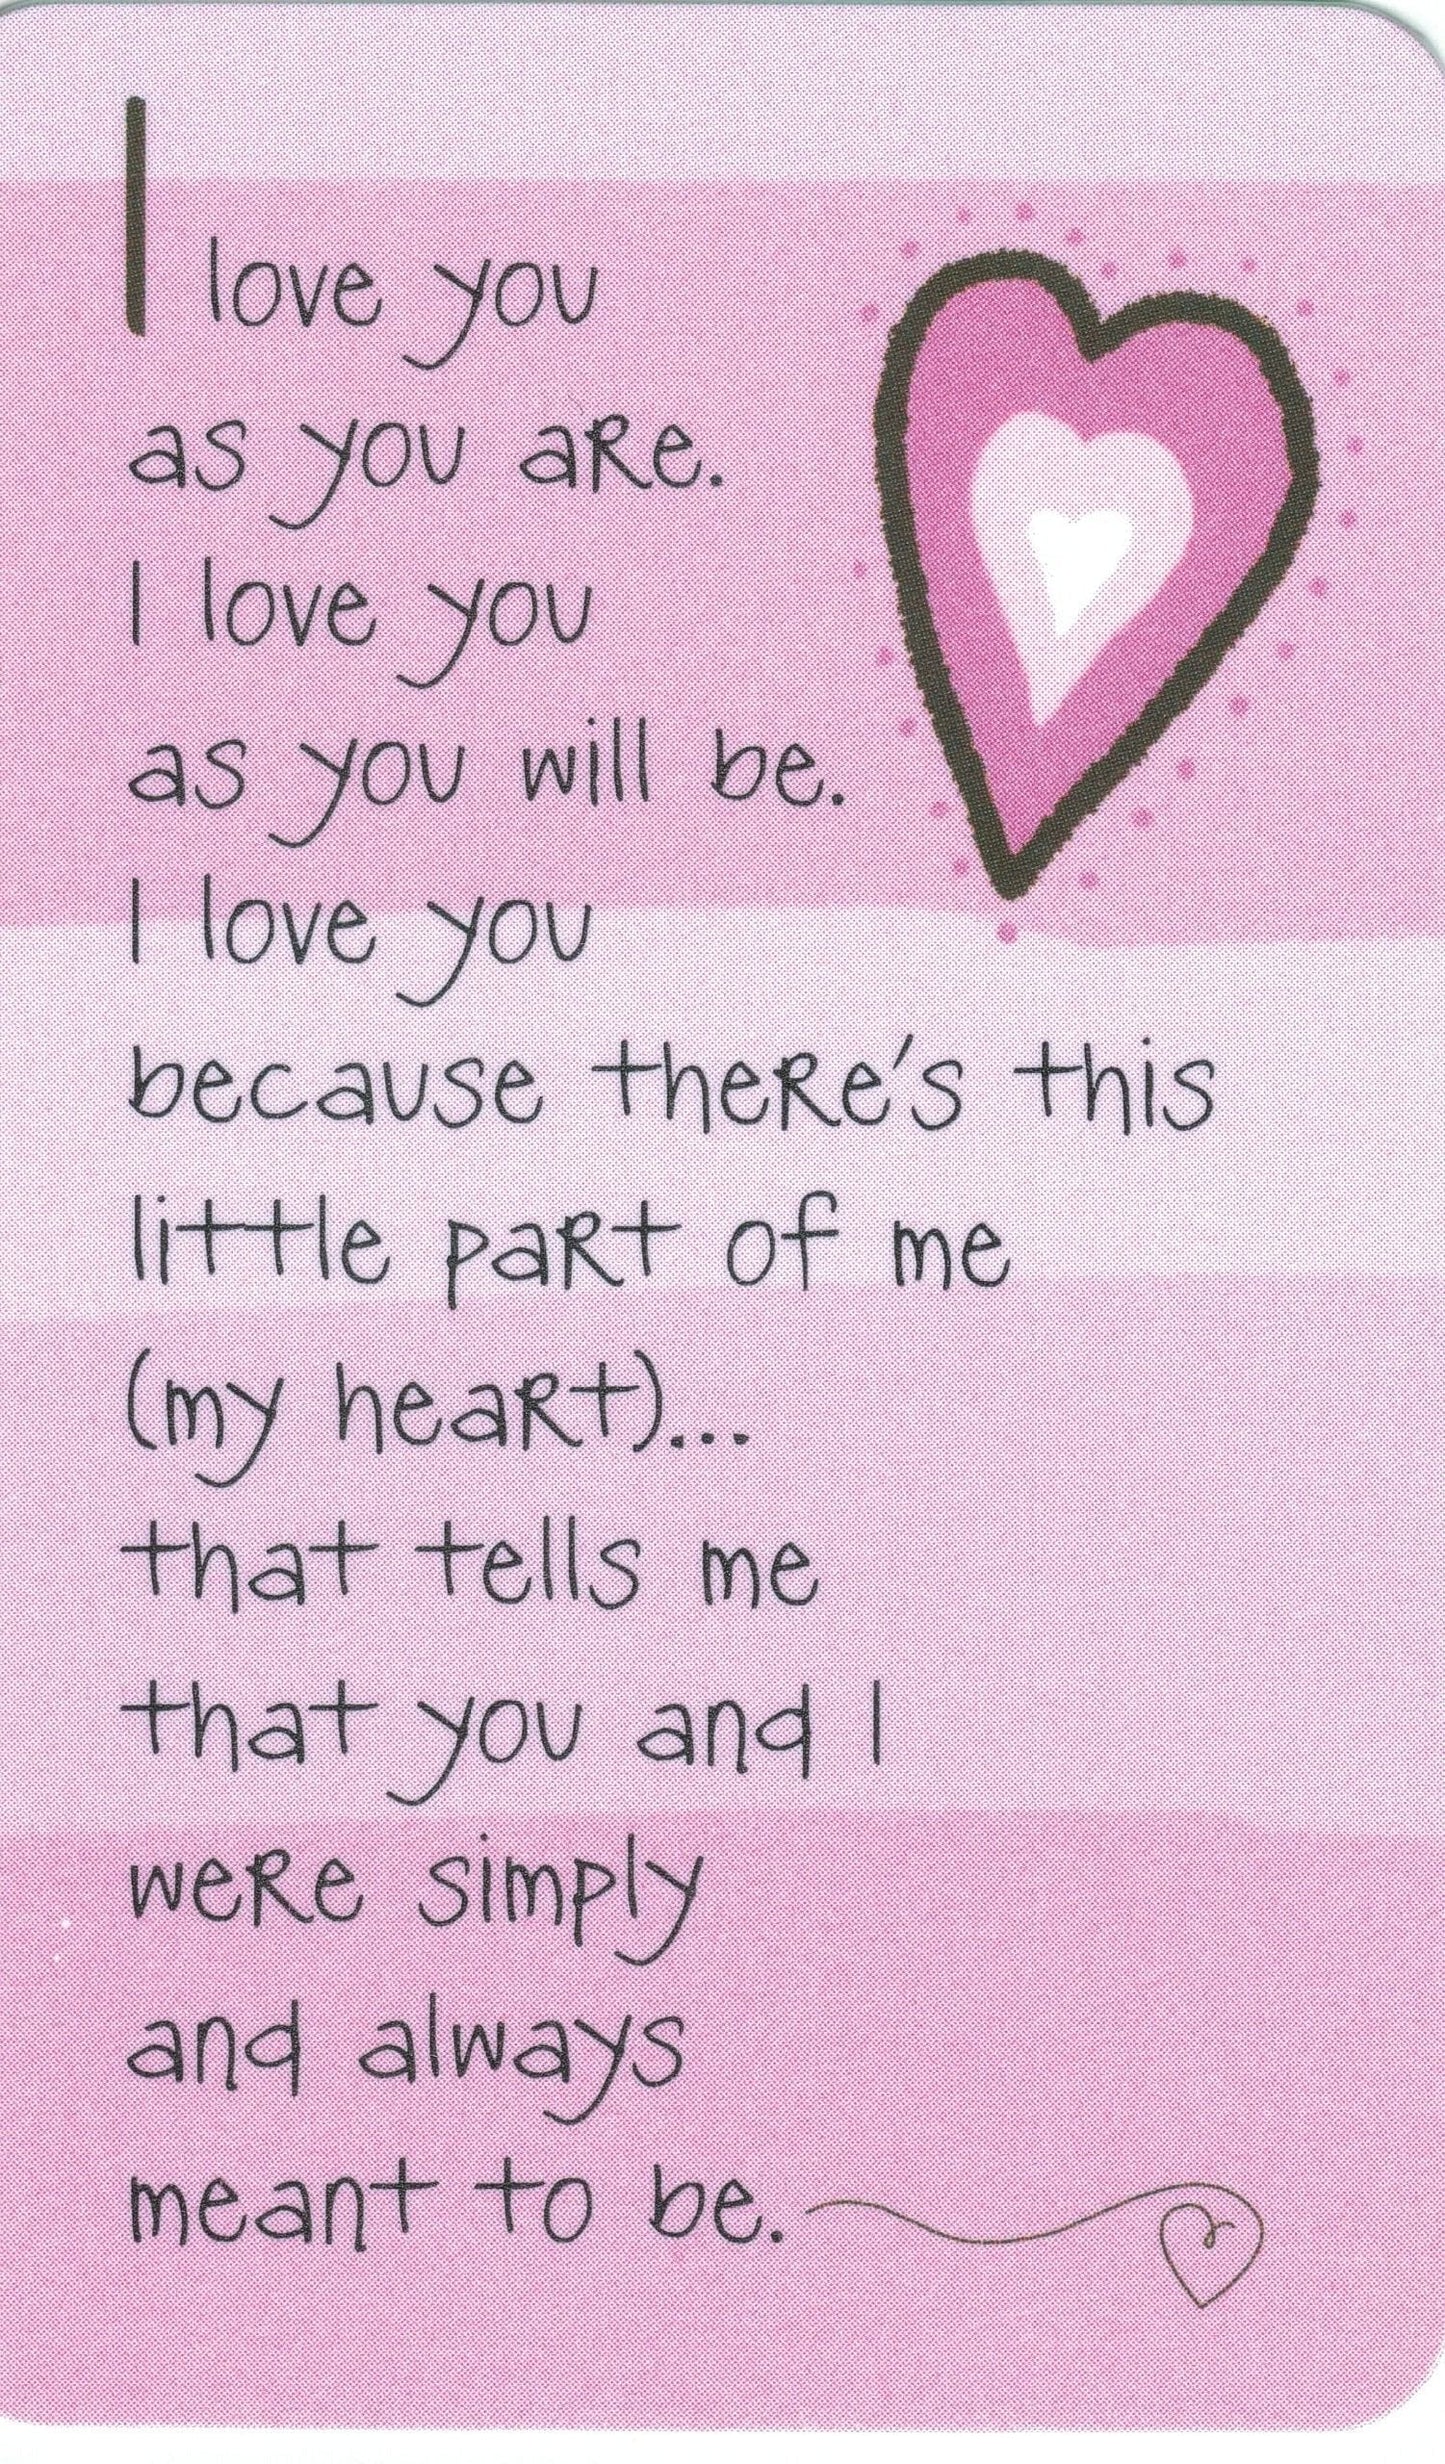 I love you
as you are.
I love you
as you will be.
I love you
because there's this
little part of me
(my heart)...
that tells me
that you and I
were simply
and always
meant to be.